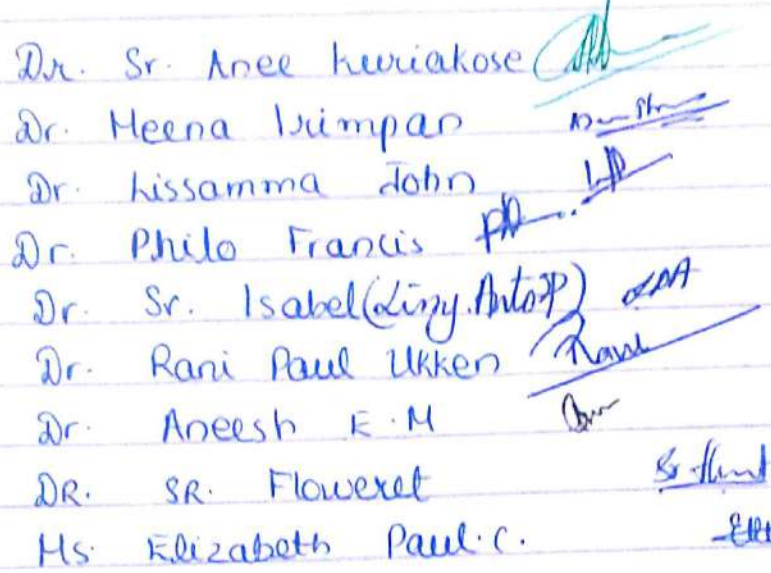 Dr. Sr. Anee Kuriakose
Dr. Meena Irimpan
Dr. Lissamma John
Dr. Philo Francis
Dr. Sr. Isabel (Liny. Anto P)
Dr. Rani Paul Ukken
Dr. Aneesh E.M
DR. SR. Floweret
Ms. Elizabeth Paul.C.